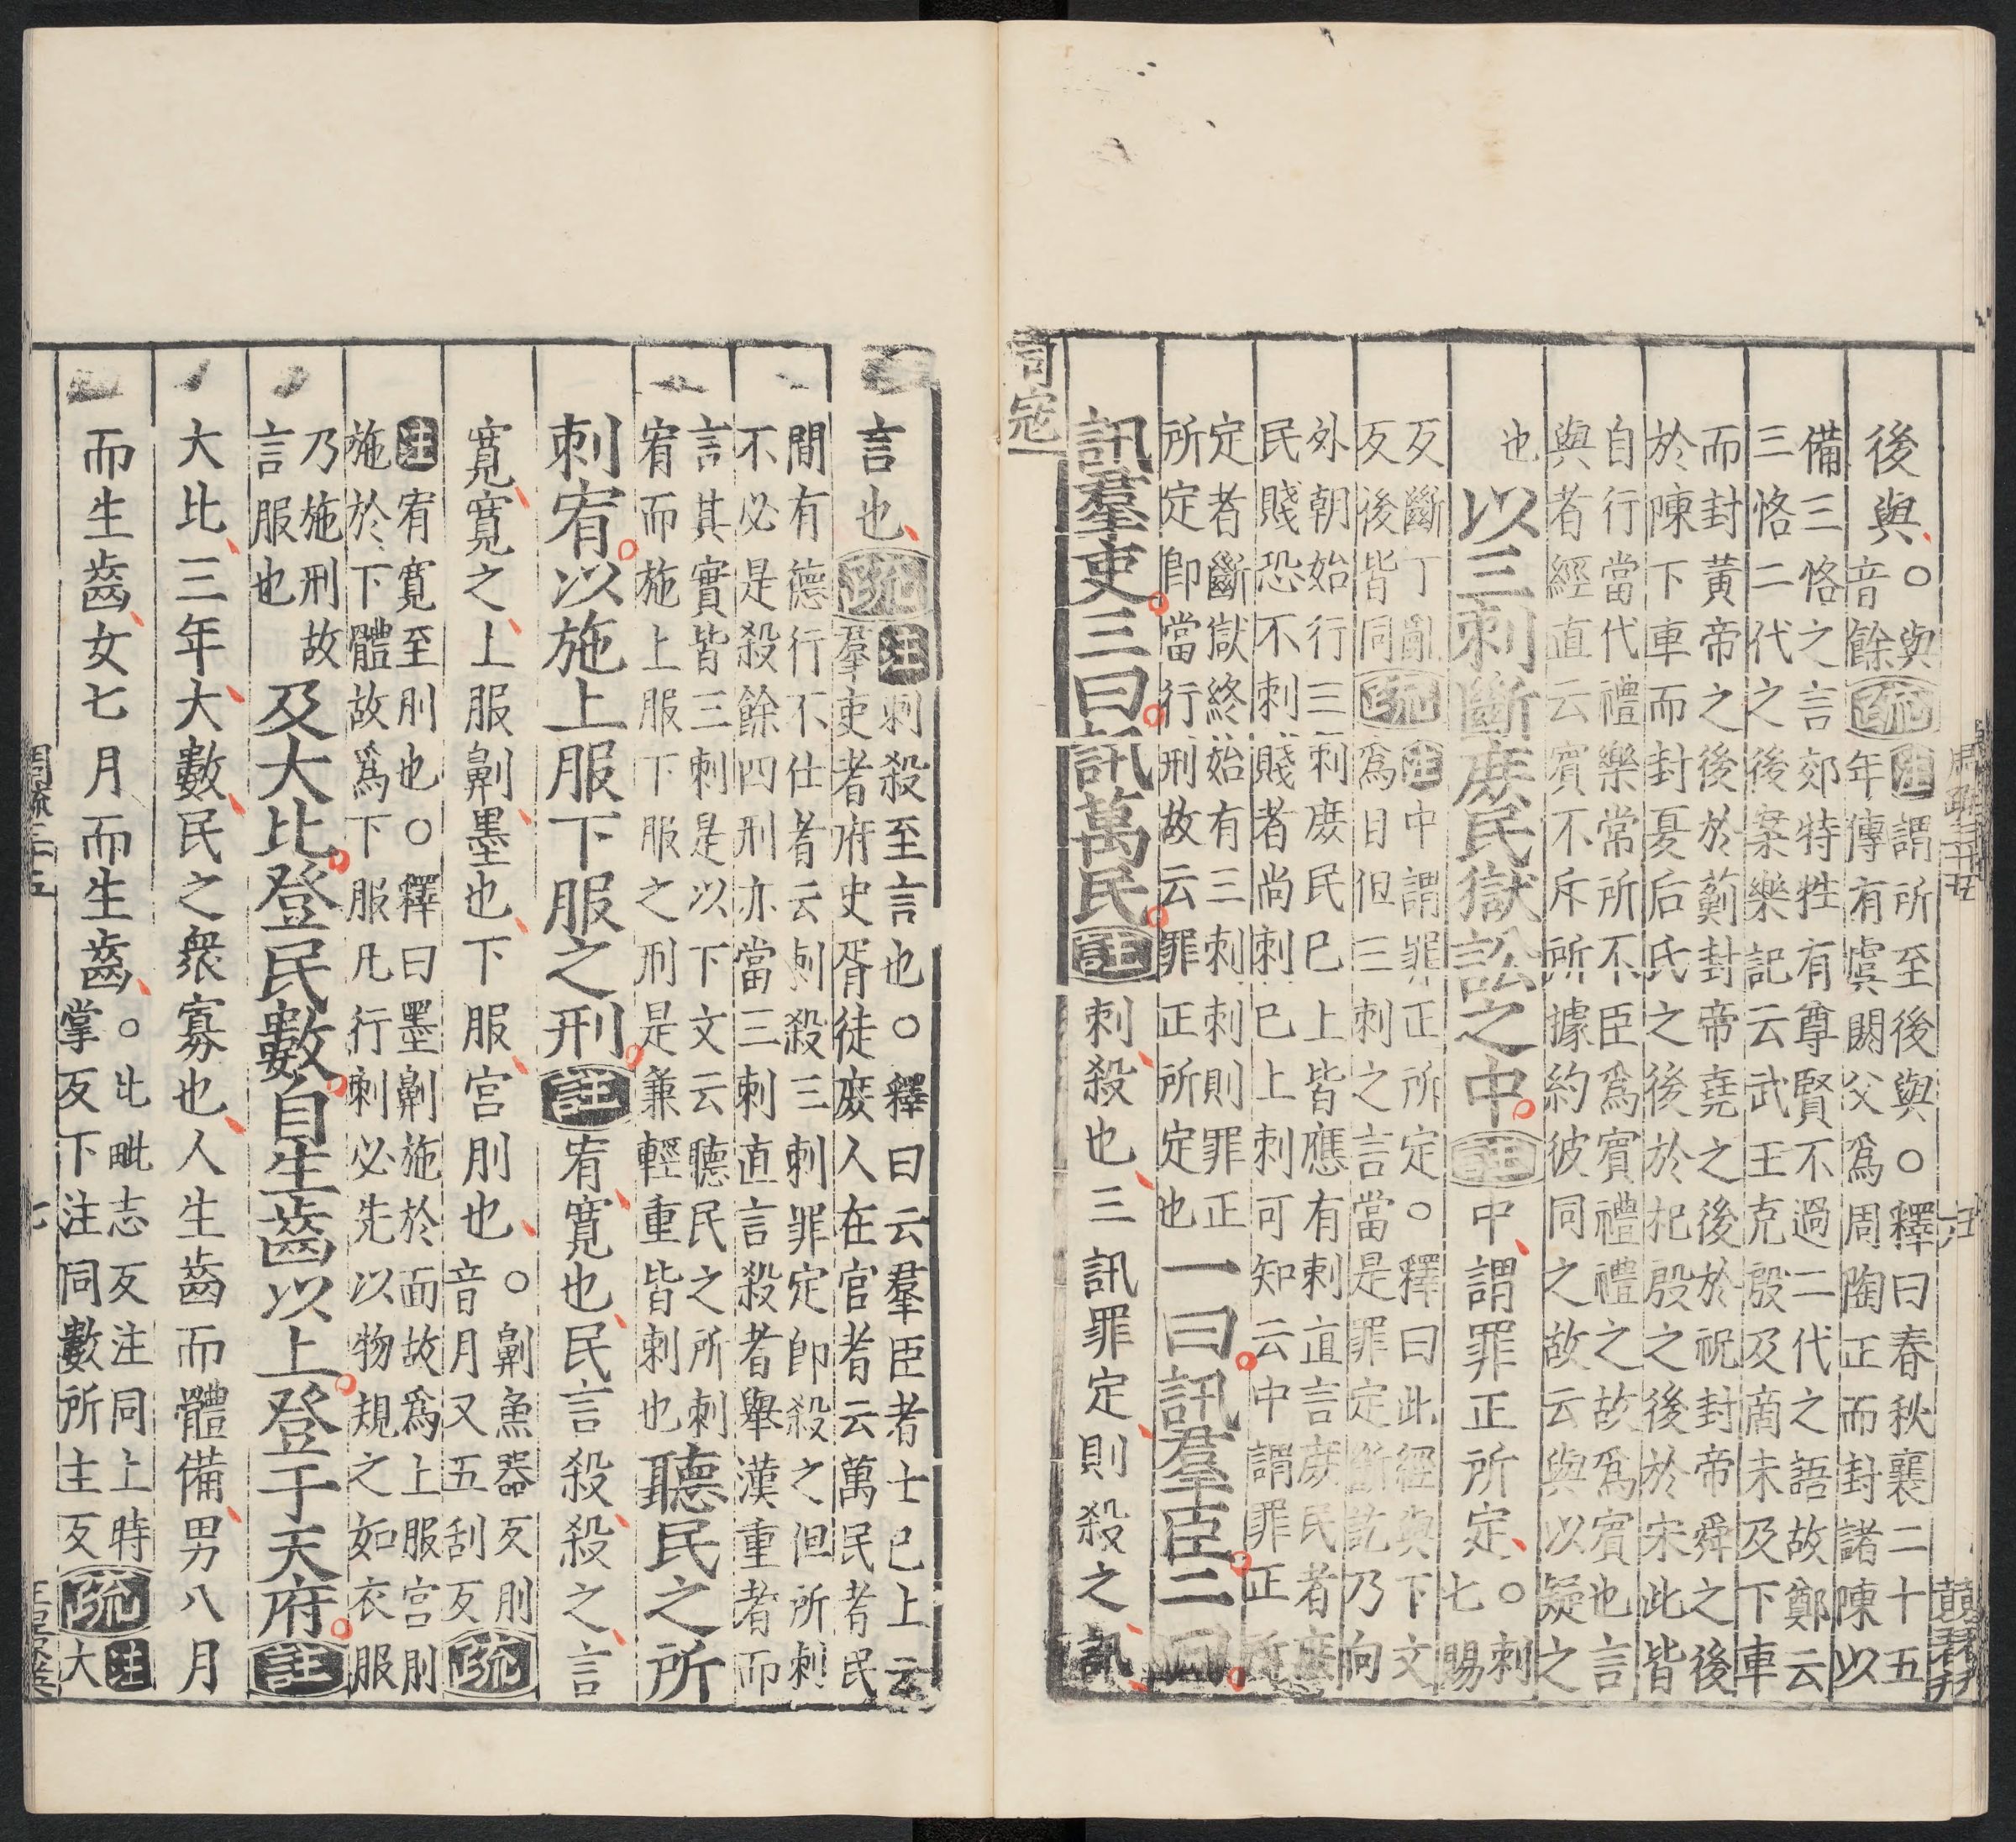 後與○與
音餘
疏
注謂所至後與○釋曰春秋襄二十五
年傳有虞閼父爲周陶正而封諸陳以
備三恪之言郊特牲有尊賢不過二代之語故鄭云
三恪二代之後案樂記云武王克殷及商未及下車
而封黃帝之後於薊封帝堯之後於祝封帝舜之後
於陳下車而封夏后氏之後於杞殷之後於宋此皆
自行當代禮樂常所不臣爲賓禮禮之故爲賓也言
與者經直云賓不斥所據約彼同之故云與以疑之
也
以三刺斷庶民獄訟之中
註
中謂罪正所定○刺
七賜
反斷丁亂
反後皆同
疏
注中謂罪正所定○釋曰此經與下文
爲目但三刺之言當是罪定斷訖乃向
外朝始行三刺庶民已上皆應有刺直言庶民者庶
民賤恐不刺賤者尚刺已上刺可知云中謂罪正所
定者斷獄終始有三刺刺則罪正
所定即當行刑故云罪正所定也
一曰訊羣臣二曰
訊羣吏三曰訊萬民
註
刺殺也三訊罪定則殺之訊
司寇
言也
疏
注刺殺至言也○釋曰云羣臣者士已上云
羣吏者府史胥徒庶人在官者云萬民者民
間有德行不仕者云刺殺三刺罪定即殺之但所刺
不必是殺餘四刑亦當三刺直言殺者舉漢重者而
言其實皆三刺是以下文云聽民之所刺
宥而施上服下服之刑是兼輕重皆刺也
聽民之所
刺宥以施上服下服之刑
註
宥寬也民言殺殺之言
寬寬之上服劓墨也下服宮刖也○劓魚器反刖
音月又五刮反
疏
注宥寬至刖也○釋曰墨劓施於面故爲上服宮刖
施於下體故爲下服凡行刺必先以物規之如衣服
乃施刑故
言服也
及大比登民數自生齒以上登于天府
註
大比三年大數民之衆寡也人生齒而體備男八月
而生齒女七月而生齒○比毗志反注同上時
掌反下注同數所主反
疏
注大